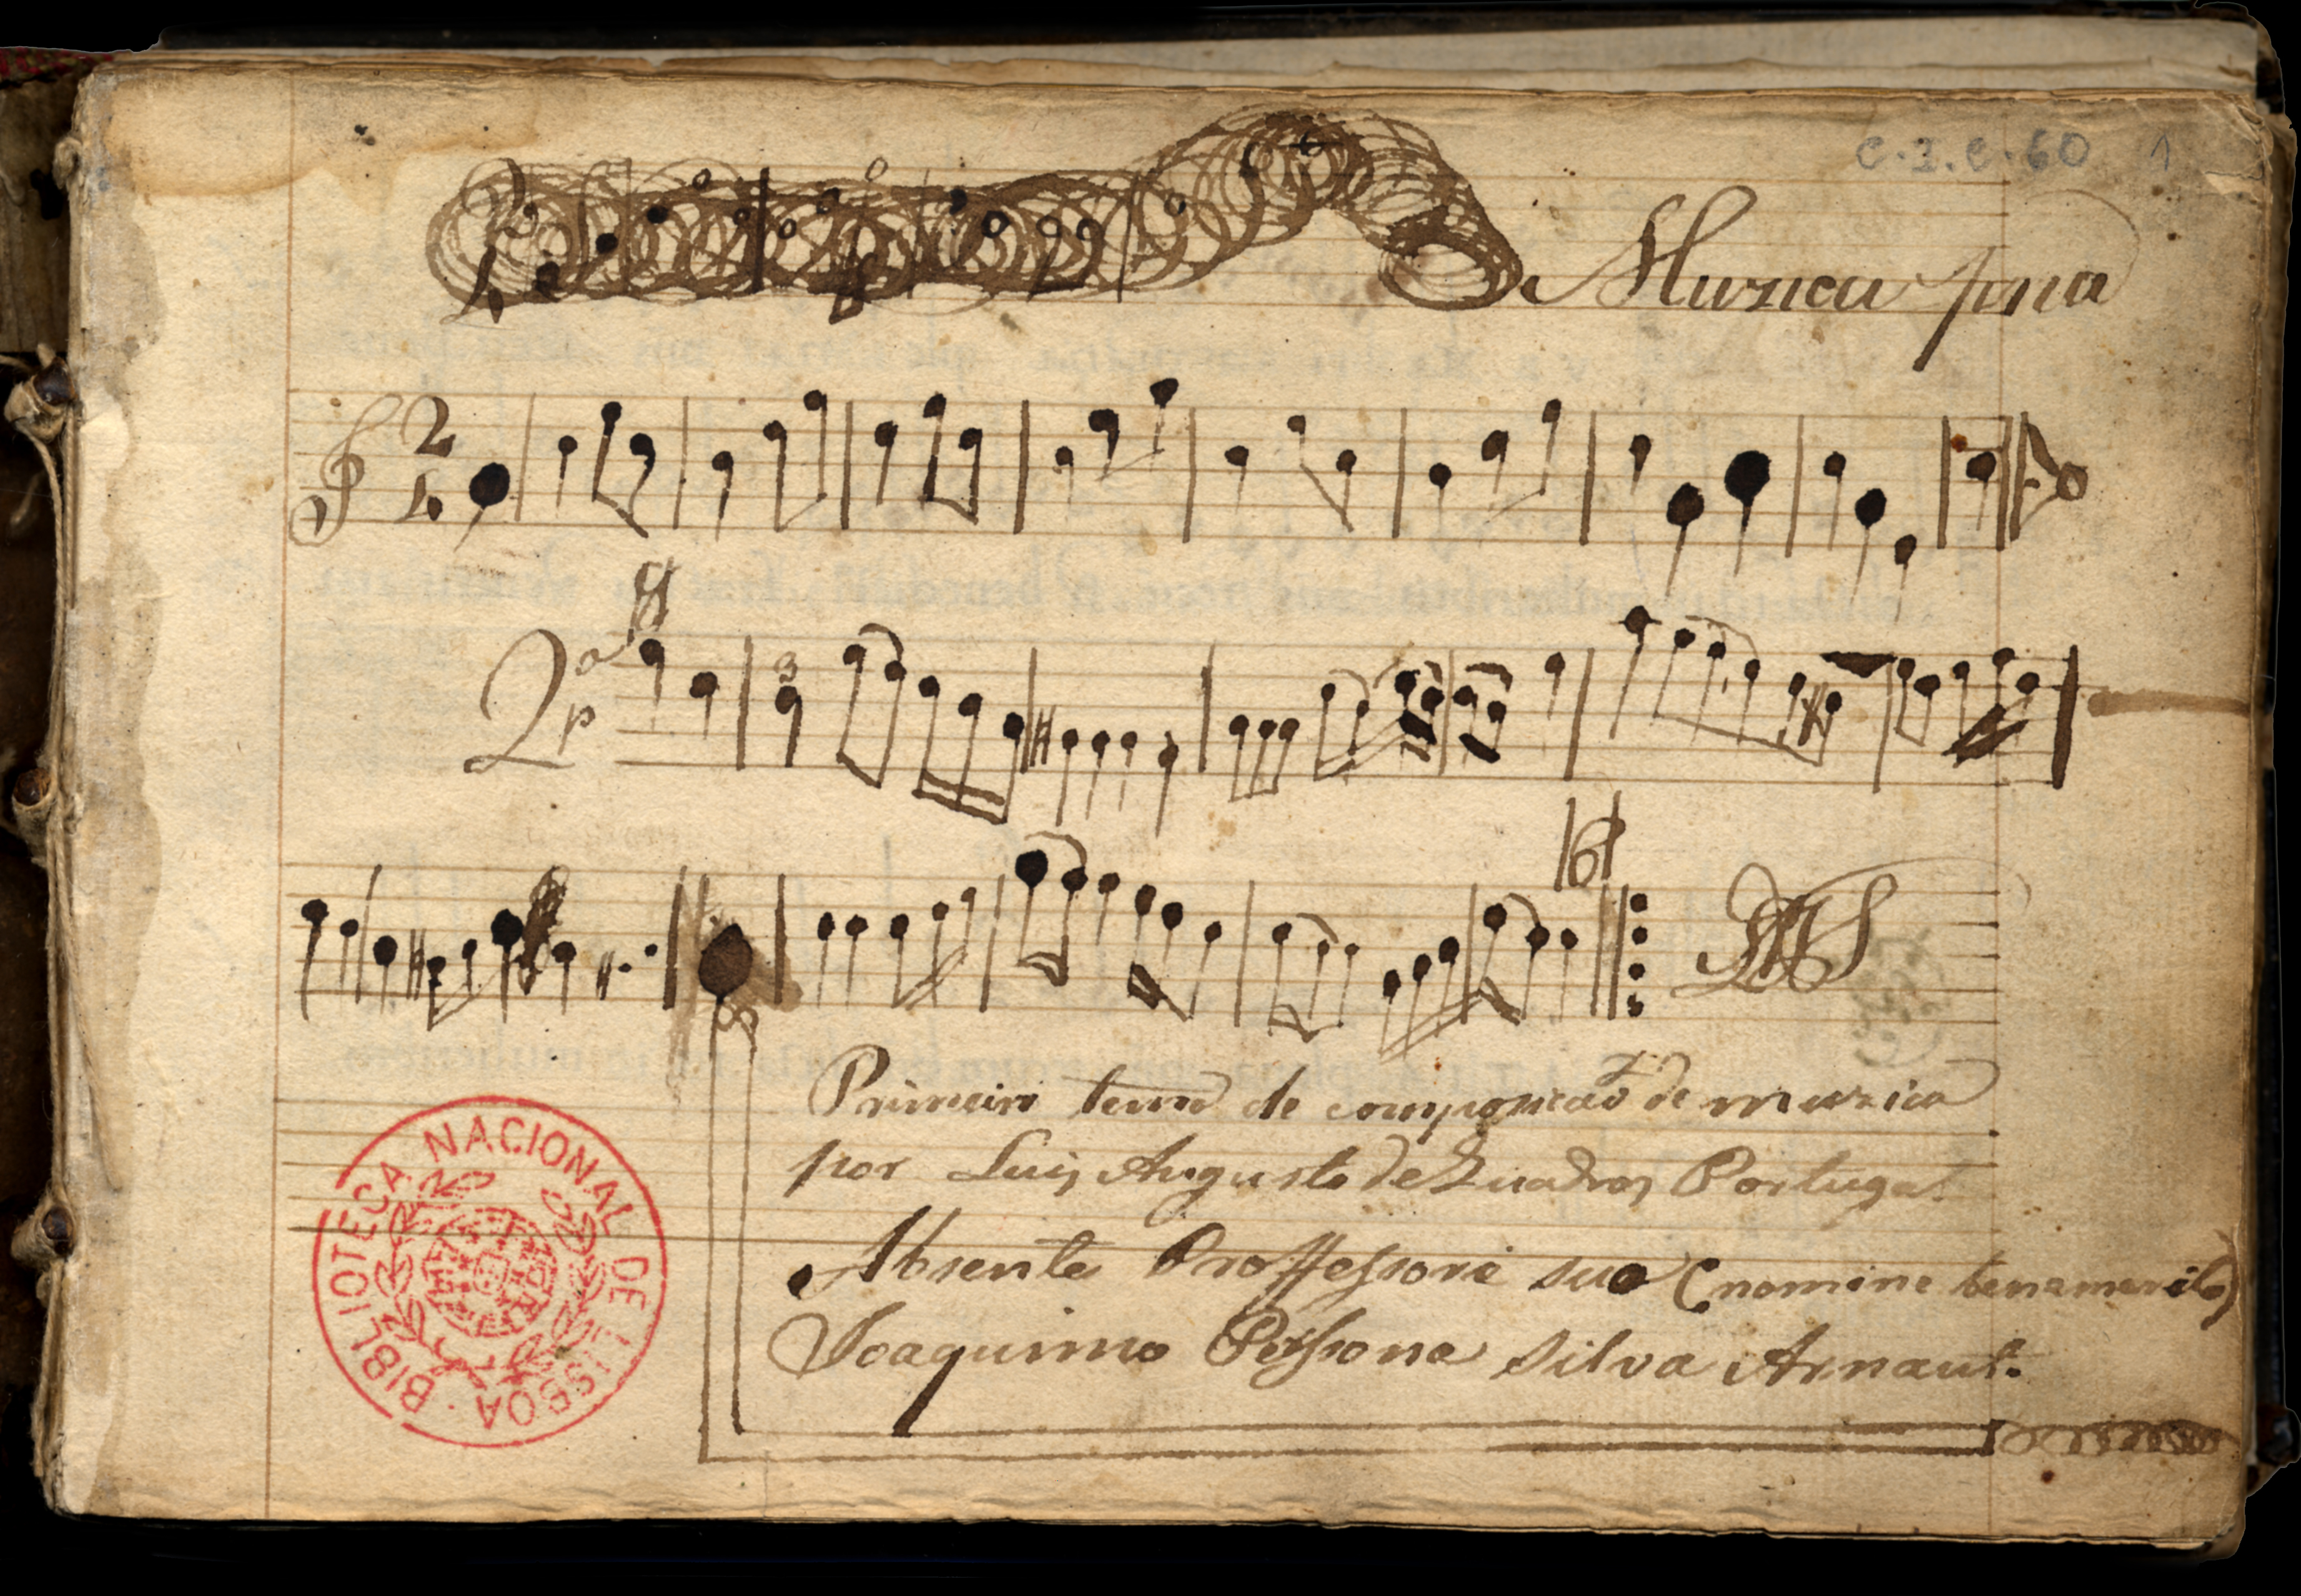 C.I.C. 60 1
Muzica
2
4
2ª
p
3
16
Primeiro de de muzica
por Luis Augusto de Quadros Portugal.
Absente Proffessore suo (nomine benemerito)
Joaquimo Pessona Silva Arnaut.
BIBLIOTECA NACIONAL DE LISBOA